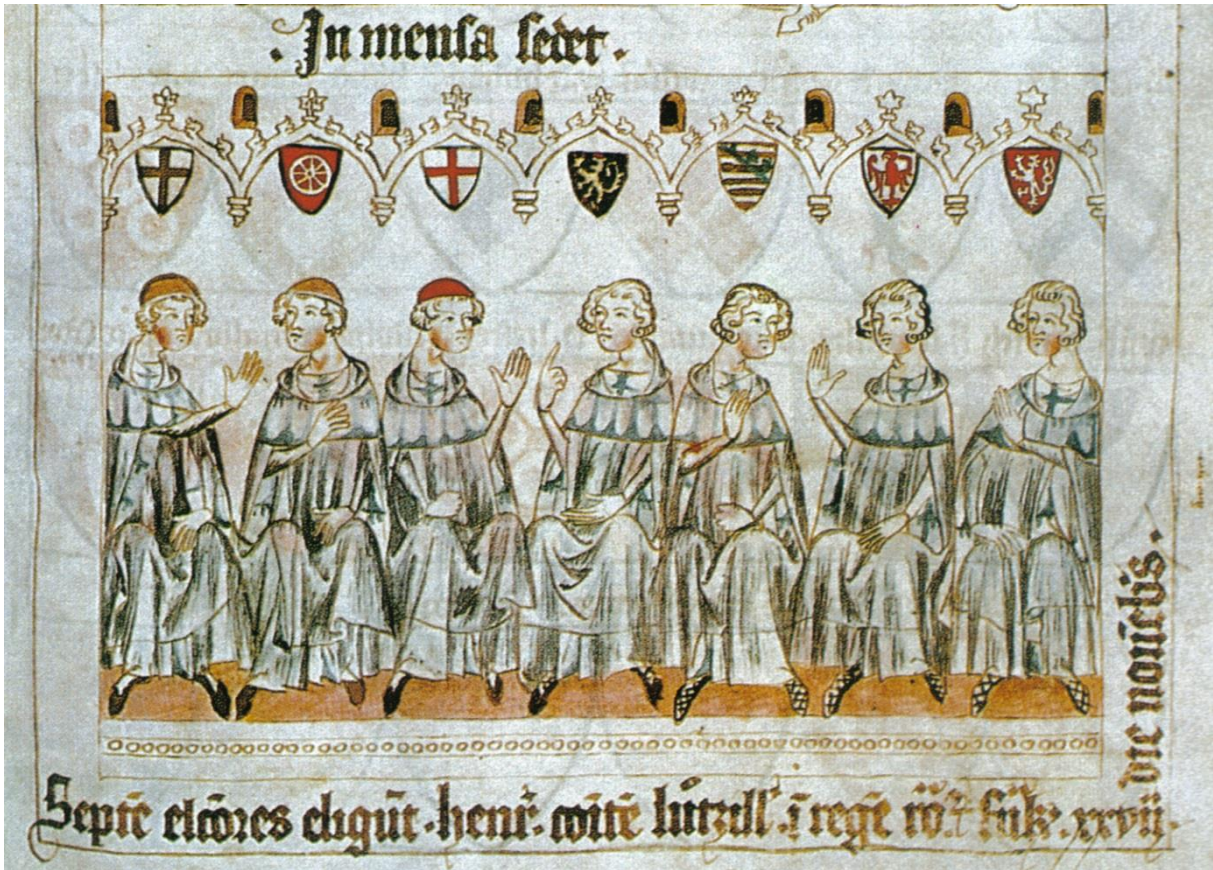 · In mensa sedet ·
Septē elc̄ores eligūt · henr̄ · coītē lūtzill' · ī regē xxvii ·
die nouēbis ·